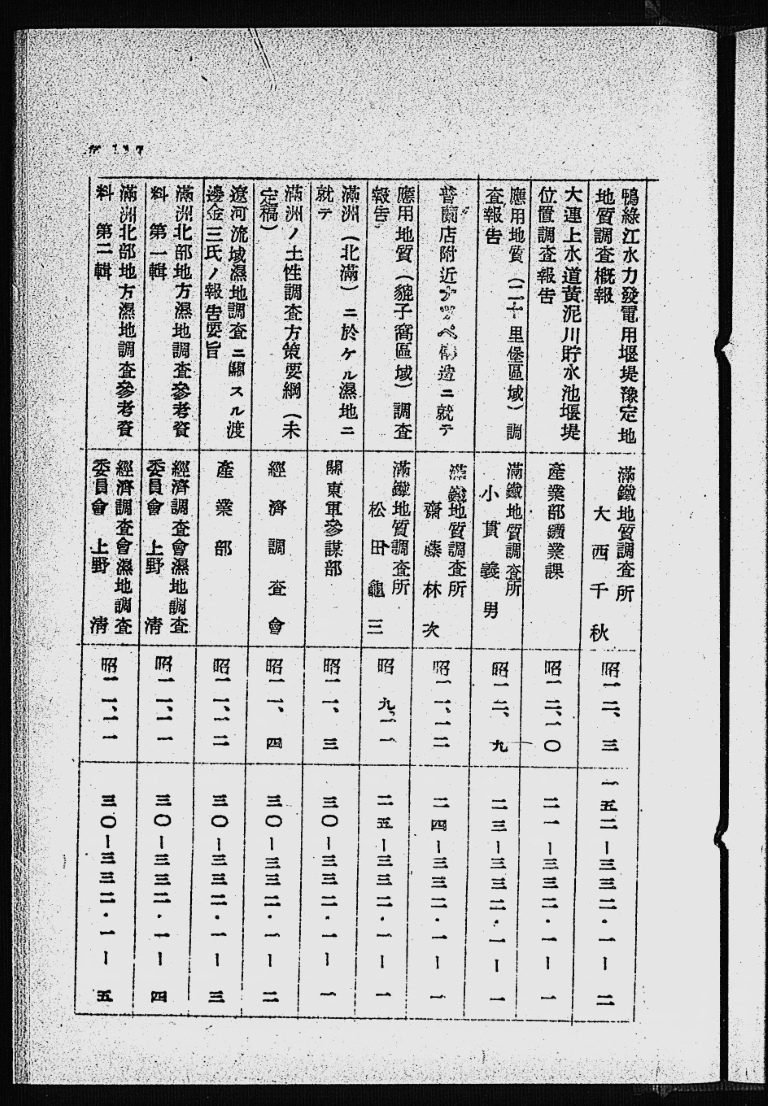 鴨綠江水力發電用堰堤豫定地
地質調査概報
滿鐵地質調査所
大西千秋
昭一二、三
一五二―三三二・一―二
大連上水道黃泥川貯水池堰堤
位置調査報告
產業部鑛業課
昭一二、一〇
二一―三三二・一―一
應用地質(二十里堡區域)調
査報告
滿鐵地質調査所
小貫義男
昭一二、九
二三―三三二・一―一
普蘭店附近
ニ就テ
滿鐵地質調査所
齋藤林次
昭一一、一二
二四―三三二・一―一
應用地質(貔子窩區域)調査
報告
滿鐵地質調査所
松田龜三
昭九、一一
二五―三三二・一―一
滿洲(北滿)ニ於ケル濕地ニ
就テ
關東軍參謀部
昭一一、三
三〇―三三二・一―一
滿洲ノ土性調査方策要綱(未
定稿)
經濟調査會
昭一一、四
三〇―三三二・一―二
遼河流域濕地調査ニ關スル渡
邊金三氏ノ報告要旨
產業部
昭一一、一二
三〇―三三二・一―三
滿洲北部地方濕地調査參考資
料 第一輯
經濟調査會濕地調査
委員會 上野 淸
昭一一、一一
三〇―三三二・一―四
滿洲北部地方濕地調査參考資
料 第二輯
經濟調査會濕地調査
委員會 上野 淸
昭一一、一一
三〇―三三二・一―五